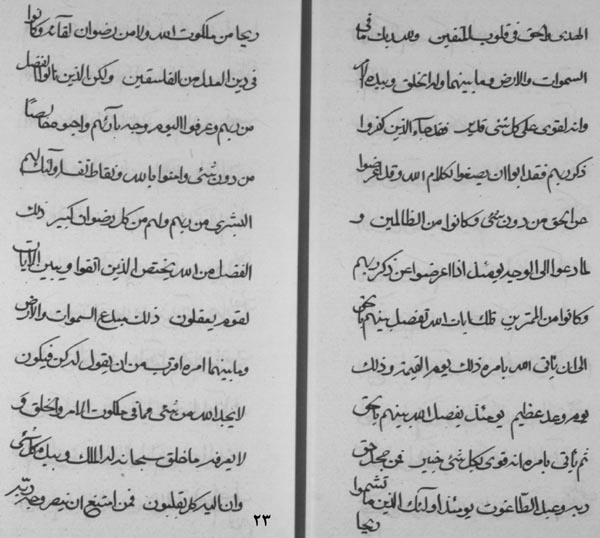 الهدى والحق فى قلوب المتقين ما فى
السموات والارض وما بينهما وله الخلق وبيده
وانه لقوى على كل شئ قدير فقد جاء الذين كفروا
ذكر ربهم فقد ابوا ان يصغوا لكلام الله وقد اعرضوا
عن الحق من دون شئ وكانوا من الظالمين و
لما دعوا الى الوحيد يومئذ اذا اعرضوا عن ذكر ربهم
وكانوا من الممترين تلك ايات الله تفصل بينهم بالحق
الى ان ياتى الله بامره ذلك يوم القيمة وذلك
يوم وعد عظيم يومئذ يفصل الله بينهم بالحق
ثم ياتى بامره انه قوى بكل شئ خبير فمن جهل حق
ربه وعبد الطاغوت يومئذ اولئك الذين ما تشموا
ريحا
ريحا من ملكوت الله ولا من رضوان لقائه وكانوا
فى دين العدل من الفاسقين ولكن الذين نالوا الفضل
من ربهم وعرفوا اليوم وجه بآئهم
من دون شئ وامنوا بالله اولئك لهم
البشرى من ربهم ولهم من كل رضوان كبير ذلك
الفضل من الله يختص الذين اتقوا ويبين الايات
لقوم يعقلون ذلك مبدع السموات والارض
وما بينهما امره اقرب من ان يقول له كن فيكون
لا يعجز الله من شئ مما فى ملكوت الامر والخلق و
لا يعرفه ما خلق سبحانه له الملك وبيده كل شئ
وان اليه كل يقلبون فمن استطع ان ينصر وجه ربه
٢٣